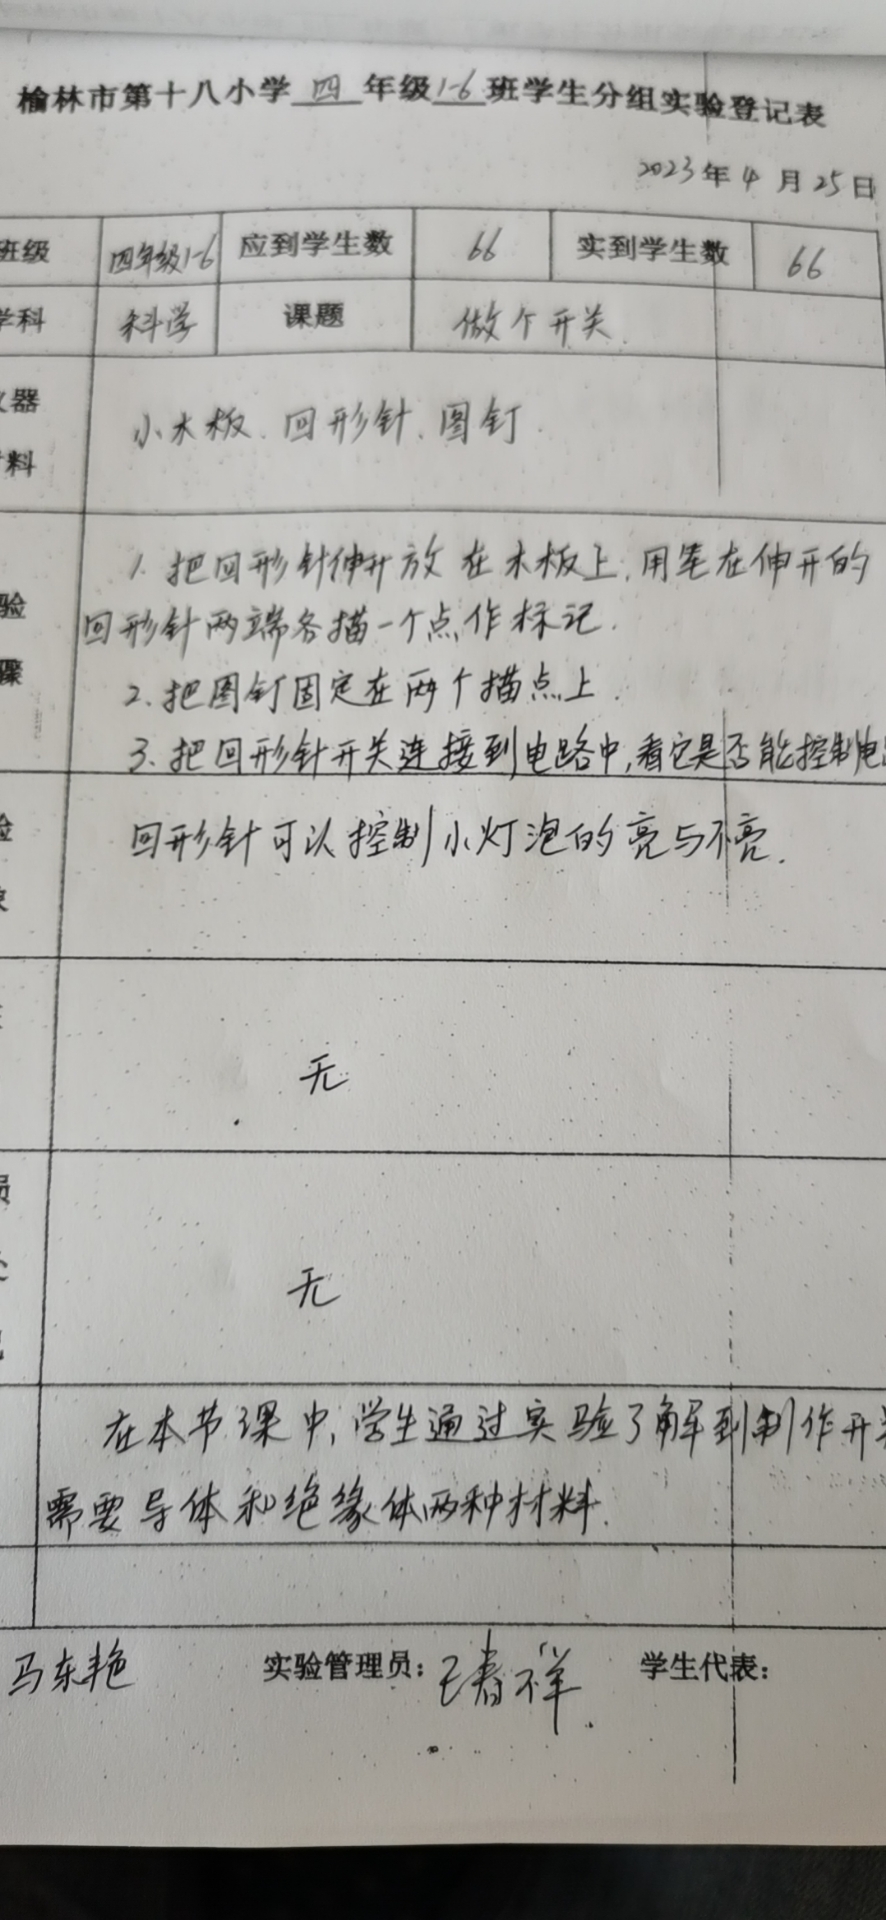 榆林市第十八小学 四 年级 1-6 班学生分组实验登记表
2023年 4 月 25日
班级 四年级1-6 应到学生数 66 实到学生数 66
学科 科学 课题 做个开关
器 小木板、回形针、图钉
料
1. 把回形针伸开放在木板上,用笔在伸开的
验 回形针两端各描一个点作标记.
骤 2. 把图钉固定在两个描点上.
3. 把回形针开关连接到电路中,看它是否能控制电
回形针可以控制小灯泡的亮与不亮.
无
无
在本节课中,学生通过实验了解到制作开
需要导体和绝缘体两种材料.
马东艳 实验管理员: 王春祥 学生代表: